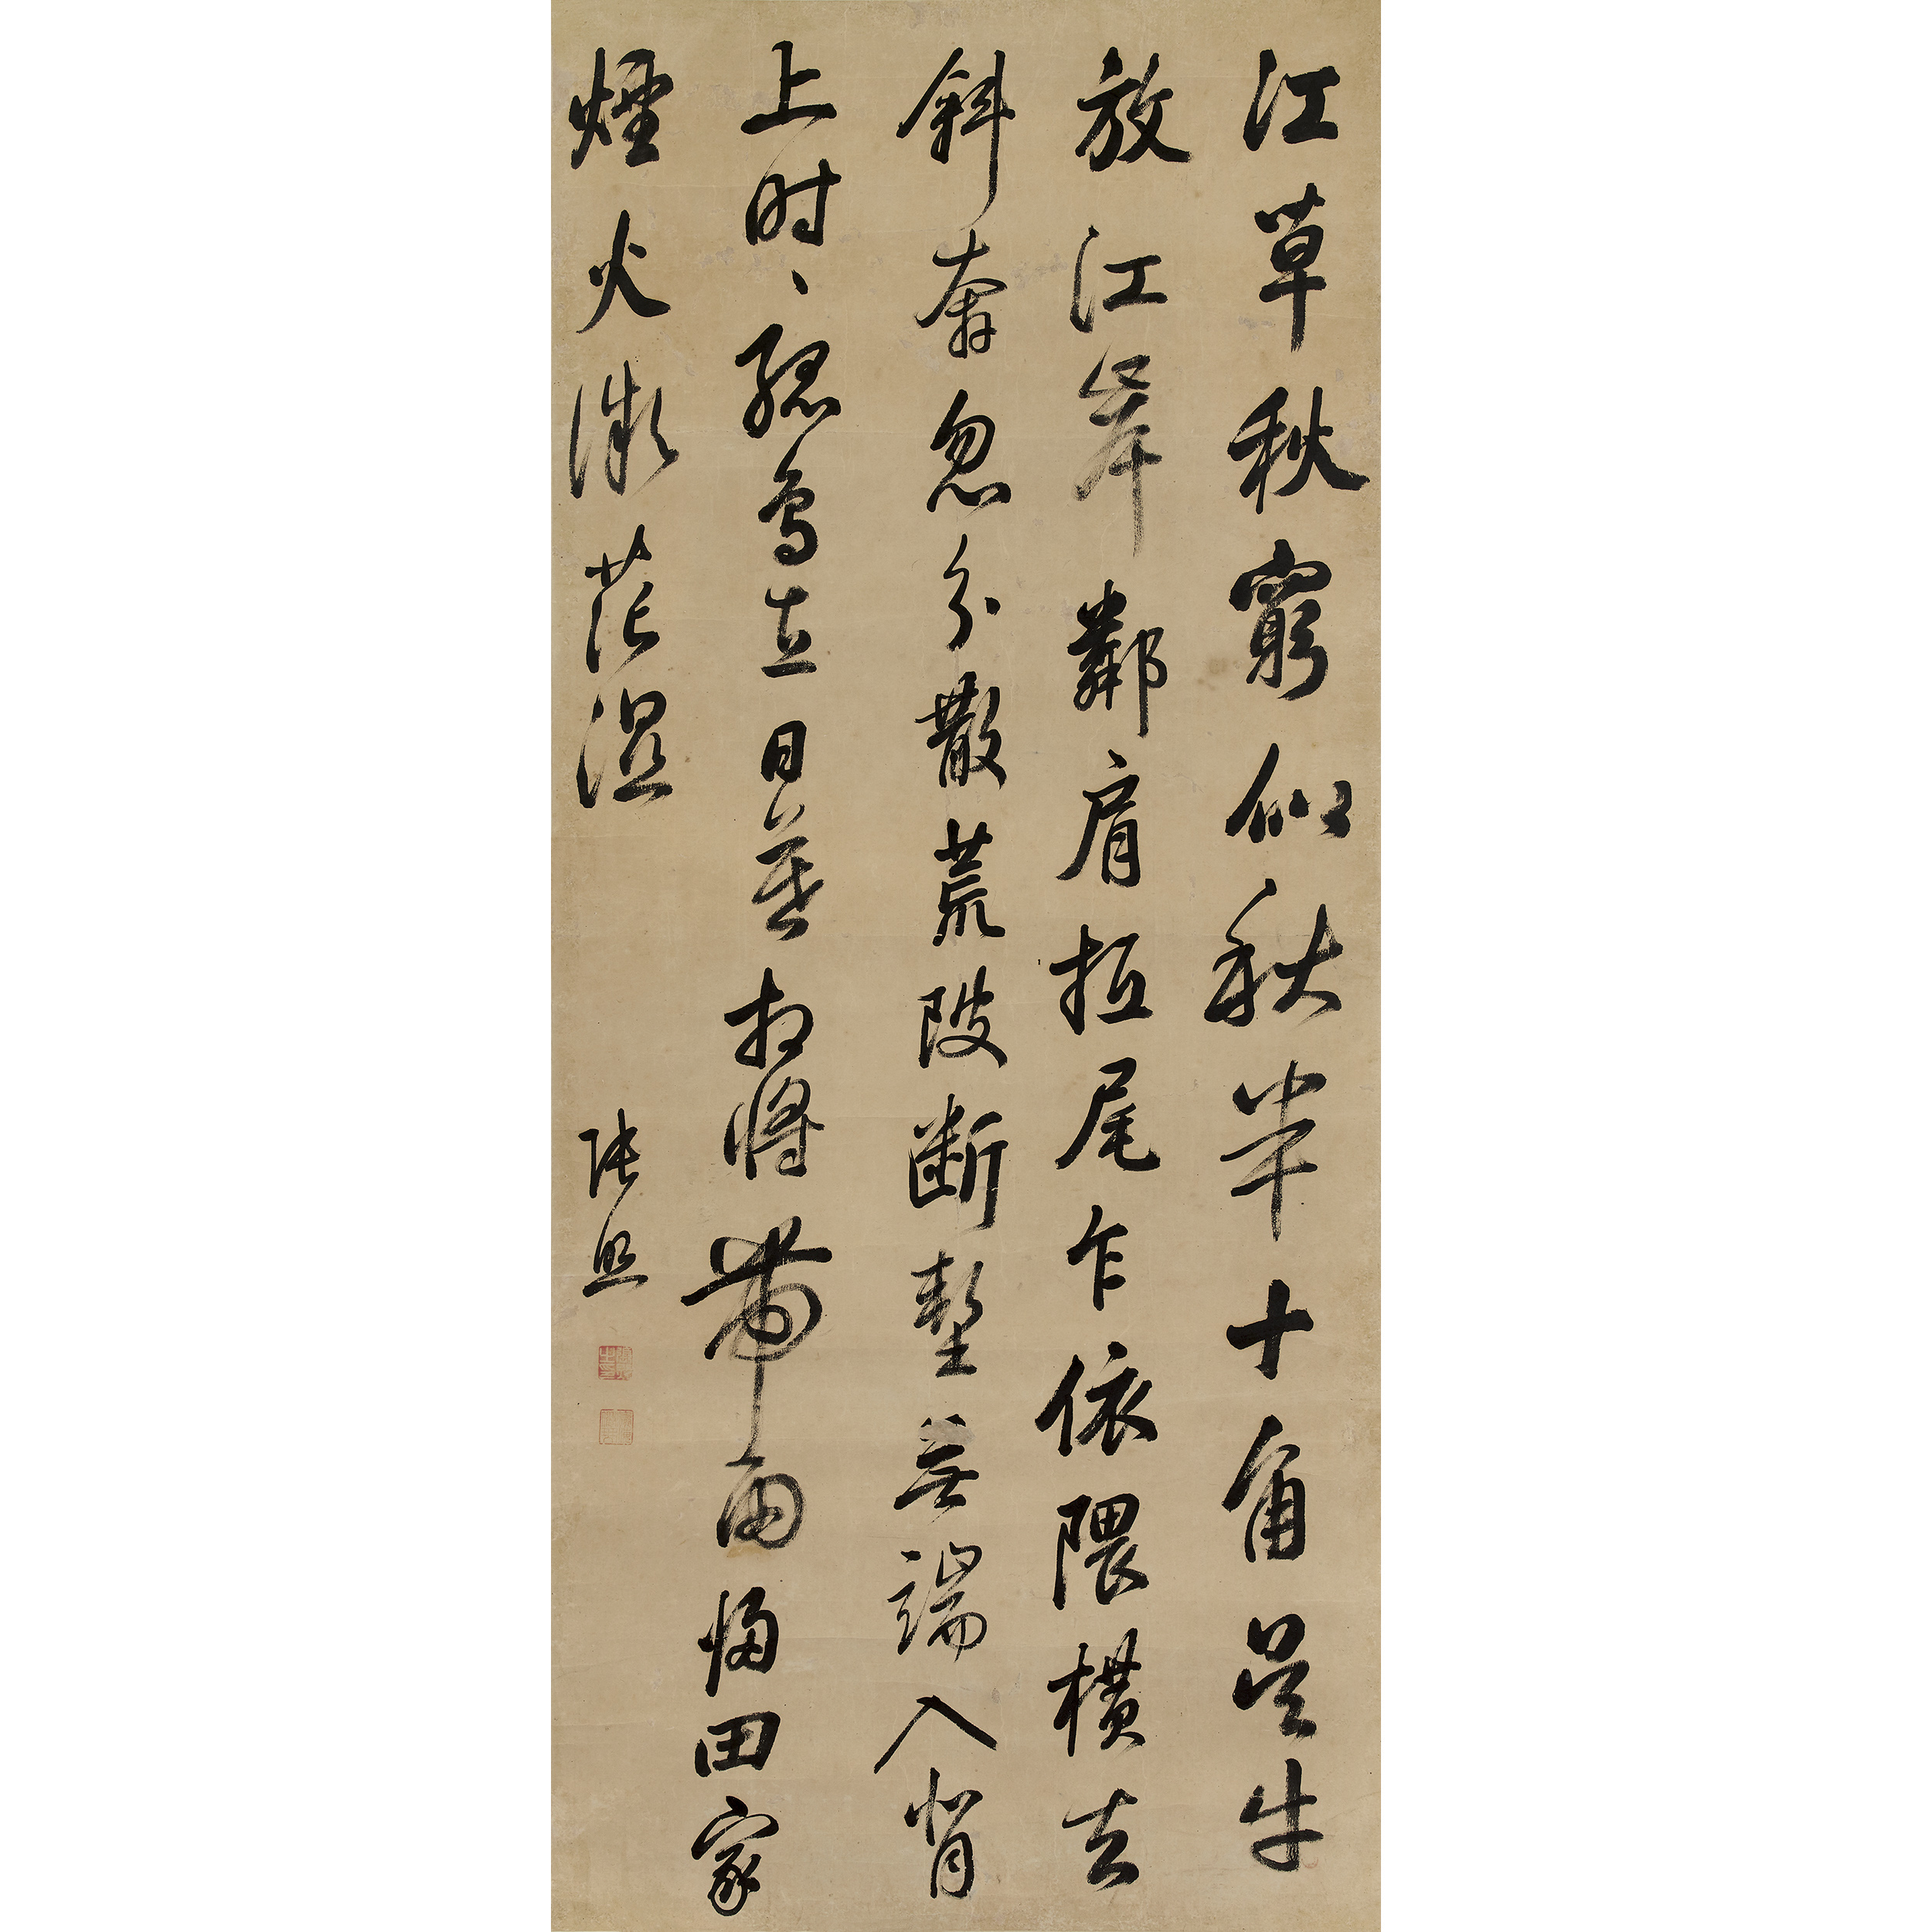 江草秋窮似秋半十角吳牛
放江岸鄰肩抵尾乍依隈橫去
斜奔忽分散荒陂斷塹無端入背
上時、孤鳥立日暮相將帶雨歸田家
煙火微茫溼
張照